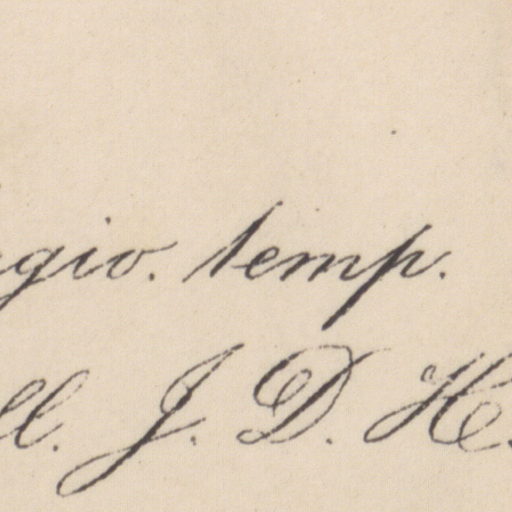 gio. temp.
ll. J. D. H.